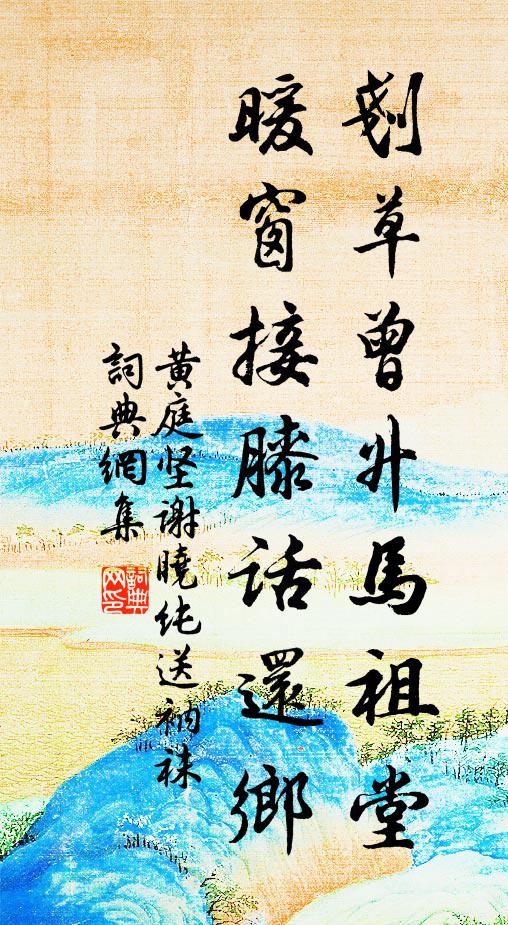 剗草曾升馬祖堂
暖窗接膝話還鄉
黄庭坚謝曉純送衲袜
詞典網集
詞典网印